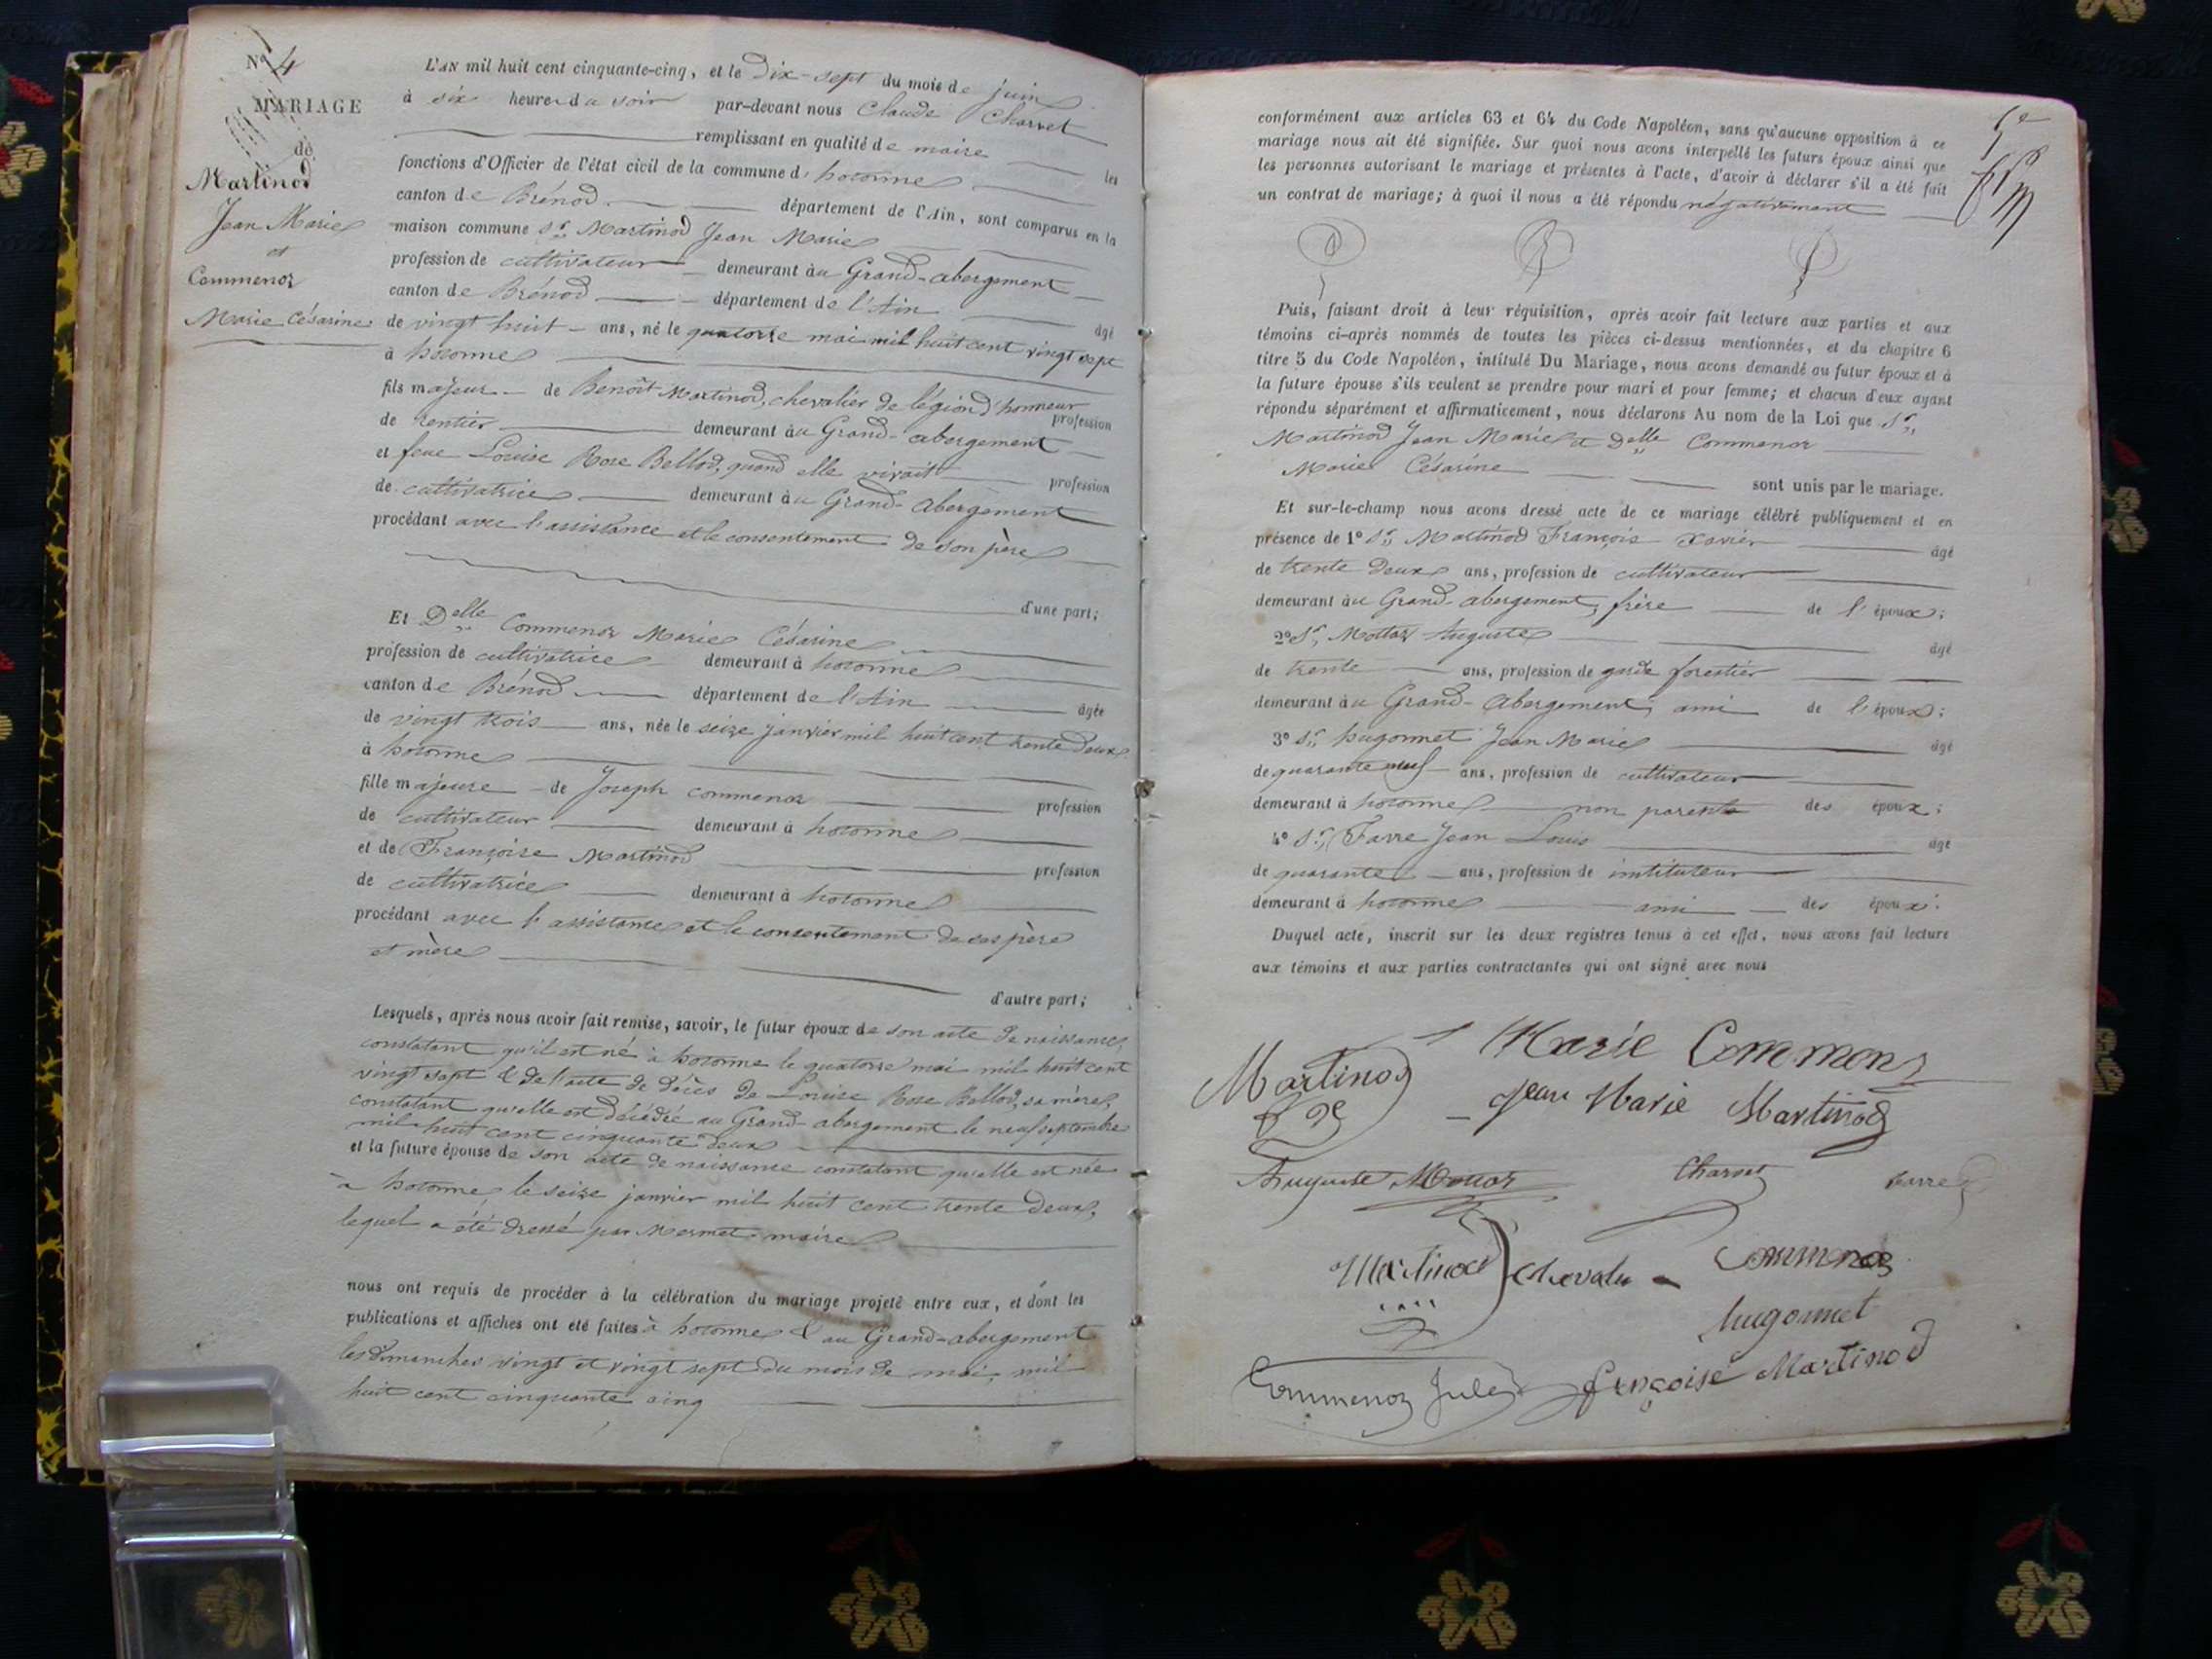 Nº 4
MARIAGE
de
Martinod
Jean Marie
et
Commenoz
Marie Césarine
L'AN mil huit cent cinquante-cinq, et le dix-sept du mois de juin
à six heures du soir par-devant nous Claude Charvet
remplissant en qualité de maire les
fonctions d'Officier de l'état civil de la commune d' hotonne
canton de Brénod département de l'Ain, sont comparus en la
maison commune Sr Martinod Jean Marie
profession de cultivateur demeurant au Grand-abergement
canton de Brénod département de l'Ain âgé
de vingt huit ans, né le quatorze mai mil huit cent vingt sept
à hotonne
fils majeur de Benoît Martinod, chevalier de légion d'honneur profession
de rentier demeurant au Grand-abergement
et feue Louise Rose Bellod, quand elle vivait profession
de cultivatrice demeurant au Grand-Abergement
procédant avec l'assistance et le consentement de son père
d'une part;
Et Delle Commenoz Marie Césarine
profession de cultivatrice demeurant à hotonne
canton de Brénod département de l'Ain âgée
de vingt trois ans, née le seize janvier mil huit cent trente deux
à hotonne
fille majeure de Joseph commenoz profession
de cultivateur demeurant à hotonne
et de Françoise Martinod profession
de cultivatrice demeurant à hotonne
procédant avec l'assistance et le consentement de ses père
et mère
d'autre part;
Lesquels, après nous avoir fait remise, savoir, le futur époux de son acte de naissance,
constatant qu'il est né à hotonne le quatorze mai mil huit cent
vingt sept & de l'acte de décès de Louise Rose Bellod, sa mère,
constatant qu'elle est décédée au Grand-abergement le neuf septembre
mil huit cent cinquante deux
et la future épouse de son acte de naissance constatant qu'elle est née
à hotonne, le seize janvier mil huit cent trente deux,
lequel a été dressé par Mermet maire
nous ont requis de procéder à la célébration du mariage projeté entre eux, et dont les
publications et affiches ont été faites à hotonne & au Grand-abergement
les dimanches vingt et vingt sept du mois de mai, mil
huit cent cinquante cinq
conformément aux articles 63 et 64 du Code Napoléon, sans qu'aucune opposition à ce
mariage nous ait été signifiée. Sur quoi nous avons interpellé les futurs époux ainsi que
les personnes autorisant le mariage et présentes à l'acte, d'avoir à déclarer s'il a été fait
un contrat de mariage; à quoi il nous a été répondu négativement
Puis, faisant droit à leur réquisition, après avoir fait lecture aux parties et aux
témoins ci-après nommés de toutes les pièces ci-dessus mentionnées, et du chapitre 6
titre 5 du Code Napoléon, intitulé Du Mariage, nous avons demandé au futur époux et à
la future épouse s'ils veulent se prendre pour mari et pour femme; et chacun d'eux ayant
répondu séparément et affirmativement, nous déclarons Au nom de la Loi que Sr
Martinod Jean Marie et Delle Commenoz
Marie Césarine
sont unis par le mariage.
Et sur-le-champ nous avons dressé acte de ce mariage célébré publiquement et en
présence de 1º Sr Martinod François Xavier âgé
de trente deux ans, profession de cultivateur
demeurant au Grand-abergement, frère de l'époux;
2º Sr Mottaz Auguste âgé
de trente ans, profession de garde forestier
demeurant au Grand-Abergement, ami de l'époux;
3º Sr hugonnet Jean Marie âgé
de quarante neuf ans, profession de cultivateur
demeurant à hotonne non parent des époux;
4º Sr Favre Jean Louis âgé
de quarante ans, profession de instituteur
demeurant à hotonne ami des époux.
Duquel acte, inscrit sur les deux registres tenus à cet effet, nous avons fait lecture
aux témoins et aux parties contractantes qui ont signé avec nous
Marie Commenoz
Martinod
Jean Marie Martinod
Auguste Mottaz Charvet Favre
Martinod Chevalier Commenoz
hugonnet
Commenoz Jules Françoise Martinod